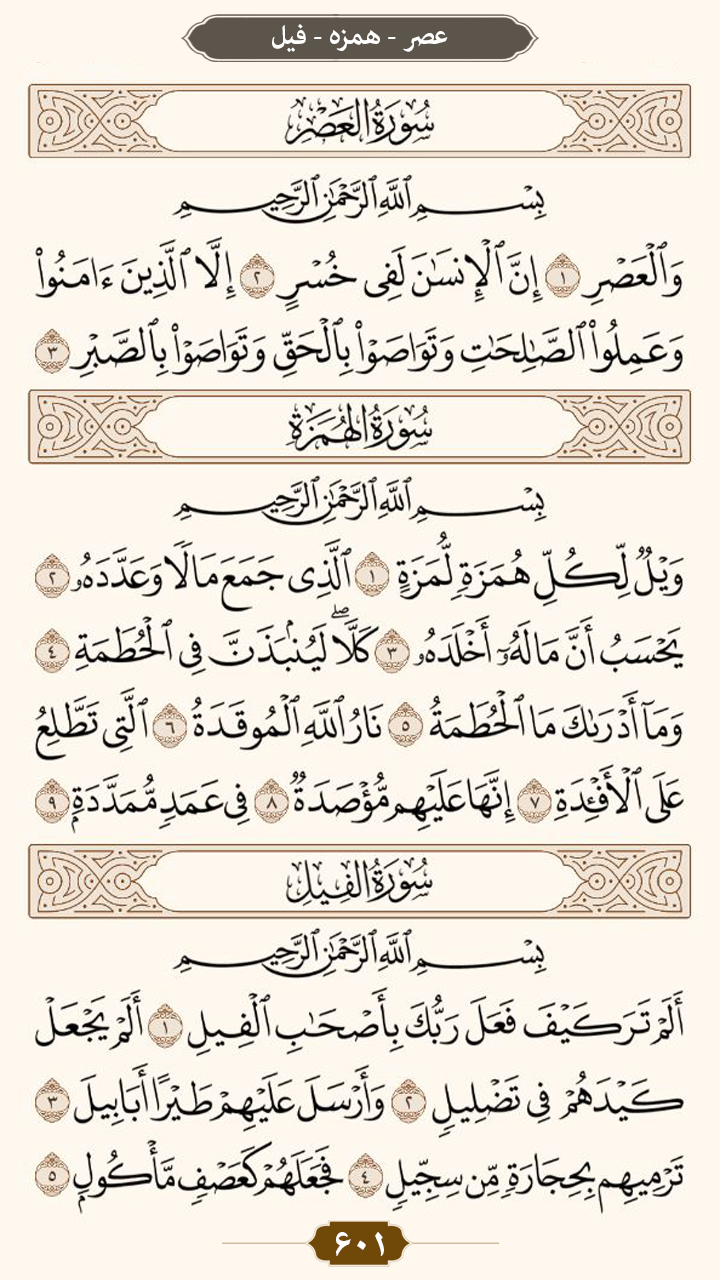 عصر - همزه - فیل
سُورَةُ الْعَصْرِ
بِسْمِ اللَّهِ الرَّحْمَٰنِ الرَّحِيمِ
وَٱلْعَصْرِ ١ إِنَّ ٱلْإِنسَٰنَ لَفِى خُسْرٍ ٢ إِلَّا ٱلَّذِينَ ءَامَنُوا۟
وَعَمِلُوا۟ ٱلصَّٰلِحَٰتِ وَتَوَاصَوْا۟ بِٱلْحَقِّ وَتَوَاصَوْا۟ بِٱلصَّبْرِ ٣
سُورَةُ الْهُمَزَةِ
بِسْمِ اللَّهِ الرَّحْمَٰنِ الرَّحِيمِ
وَيْلٌ لِّكُلِّ هُمَزَةٍ لُّمَزَةٍ ١ ٱلَّذِى جَمَعَ مَالًا وَعَدَّدَهُۥ ٢
يَحْسَبُ أَنَّ مَالَهُۥٓ أَخْلَدَهُۥ ٣ كَلَّا ۖ لَيُنۢبَذَنَّ فِى ٱلْحُطَمَةِ ٤
وَمَآ أَدْرَىٰكَ مَا ٱلْحُطَمَةُ ٥ نَارُ ٱللَّهِ ٱلْمُوقَدَةُ ٦ ٱلَّتِى تَطَّلِعُ
عَلَى ٱلْأَفْـِٔدَةِ ٧ إِنَّهَا عَلَيْهِم مُّؤْصَدَةٌ ٨ فِى عَمَدٍ مُّمَدَّدَةٍۭ ٩
سُورَةُ الْفِيلِ
بِسْمِ اللَّهِ الرَّحْمَٰنِ الرَّحِيمِ
أَلَمْ تَرَ كَيْفَ فَعَلَ رَبُّكَ بِأَصْحَٰبِ ٱلْفِيلِ ١ أَلَمْ يَجْعَلْ
كَيْدَهُمْ فِى تَضْلِيلٍ ٢ وَأَرْسَلَ عَلَيْهِمْ طَيْرًا أَبَابِيلَ ٣
تَرْمِيهِم بِحِجَارَةٍ مِّن سِجِّيلٍ ٤ فَجَعَلَهُمْ كَعَصْفٍ مَّأْكُولٍۭ ٥
۶۰۱